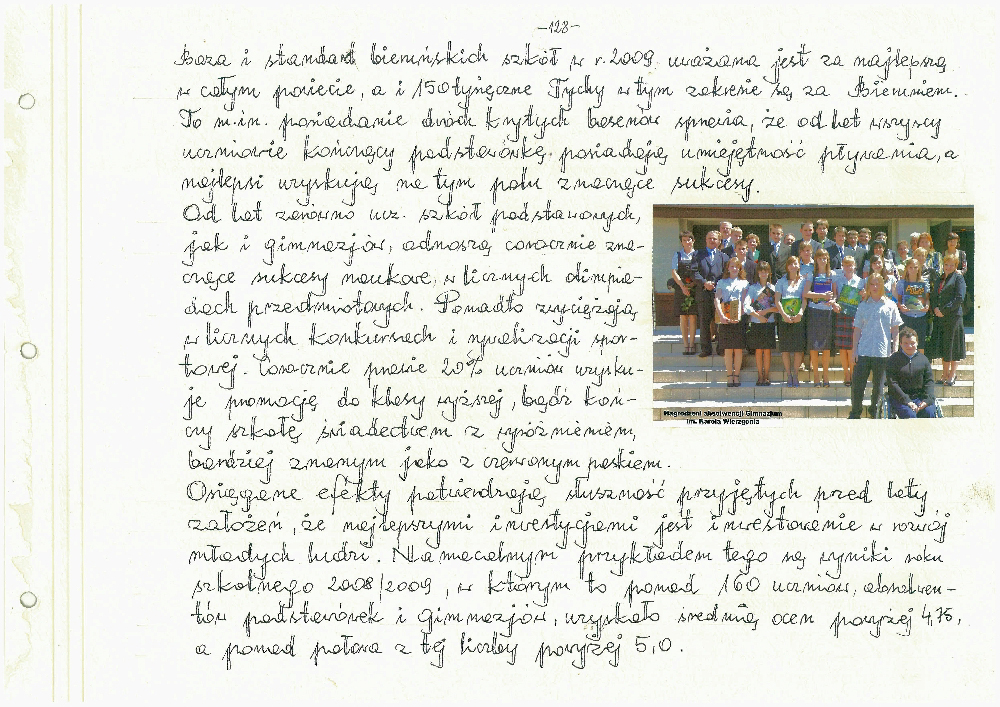 -128-
Baza i standard bieruńskich szkół w r. 2009 uważana jest za najlepszą
w całym powiecie, a i 150 tysięczne Tychy w tym zakresie są za Bieruniem.
To m.in. posiadanie dwóch krytych basenów sprawia, że od lat wszyscy
uczniowie kończący podstawówkę posiadają umiejętność pływania, a
najlepsi uzyskują na tym polu znaczące sukcesy.
Od lat zarówno ucz. szkół podstawowych,
jak i gimnazjów, odnoszą corocznie zna-
czące sukcesy naukowe, w licznych olimpia-
dach przedmiotowych. Ponadto zwyciężają
w licznych konkursach i rywalizacji spor-
towej. Corocznie prawie 20% uczniów uzysku-
je promocję do klasy wyższej, bądź koń-
czy szkołę świadectwem z wyróżnieniem,
bardziej znanym jako z czerwonym paskiem.
Osiągane efekty potwierdzają słuszność przyjętych przed laty
założeń, że najlepszymi inwestycjami jest inwestowanie w rozwój
młodych ludzi. Namacalnym przykładem tego są wyniki roku
szkolnego 2008/2009, w którym to ponad 160 uczniów, absolwen-
tów podstawówek i gimnazjów, uzyskało średnią ocen powyżej 4,75,
a ponad połowa z tej liczby powyżej 5,0.
Nagrodzeni absolwenci Gimnazjum
im. Karola Wierzgonia